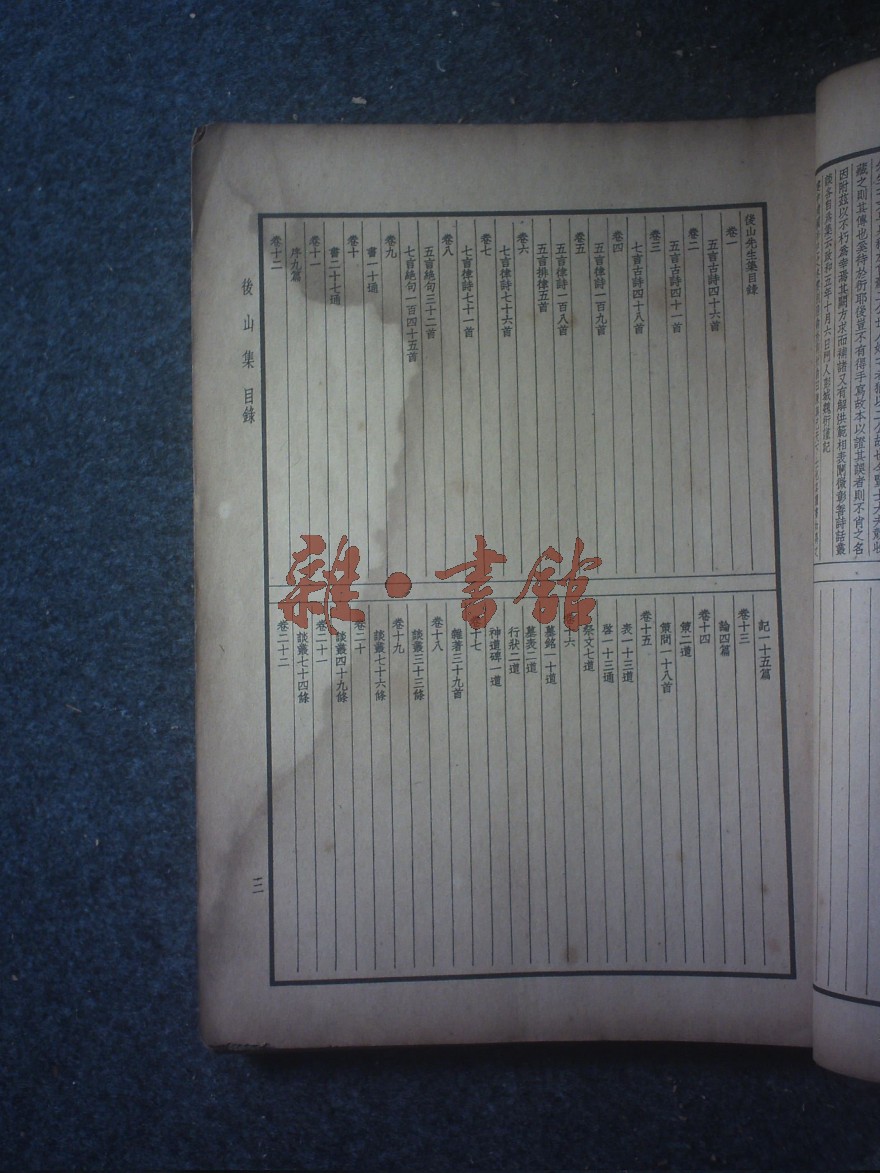 藏之則其傳也奚待於衍耶使豈不有得手寫故本以證其誤者則不肖之名
因附茲以不朽爲幸焉其闕方求而補諸又有解供範相表闡微彰善詩話叢
談各自爲集云政和五年十月六日門人彭城魏衍謹記
後山先生集目錄
卷一
五言古詩四十六首
卷二
五言古詩四十一首
卷三
七言古詩四十八首
卷四
五言律詩一百九首
卷五
五言律詩一百八首
五言排律五首
卷六
七言律詩七十六首
卷七
七言律詩七十一首
卷八
五言絕句三十二首
七言絕句一百四十五首
卷九
書一十通
卷十
書二十七通
卷十一
序九篇
卷十二
記一十五篇
卷十三
論四篇
卷十四
策二道
策問一十八首
卷十五
表一十三道
啓一十三通
祭文七道
十六
墓銘一十道
墓表二道
行狀二道
神道碑一道
十七
雜著三十九首
卷十八
談叢三十三條
卷十九
談叢七十六條
卷二十
談叢四十九條
卷二十一
談叢七十四條
卷二十二
後山集 目錄
三
雜·書館